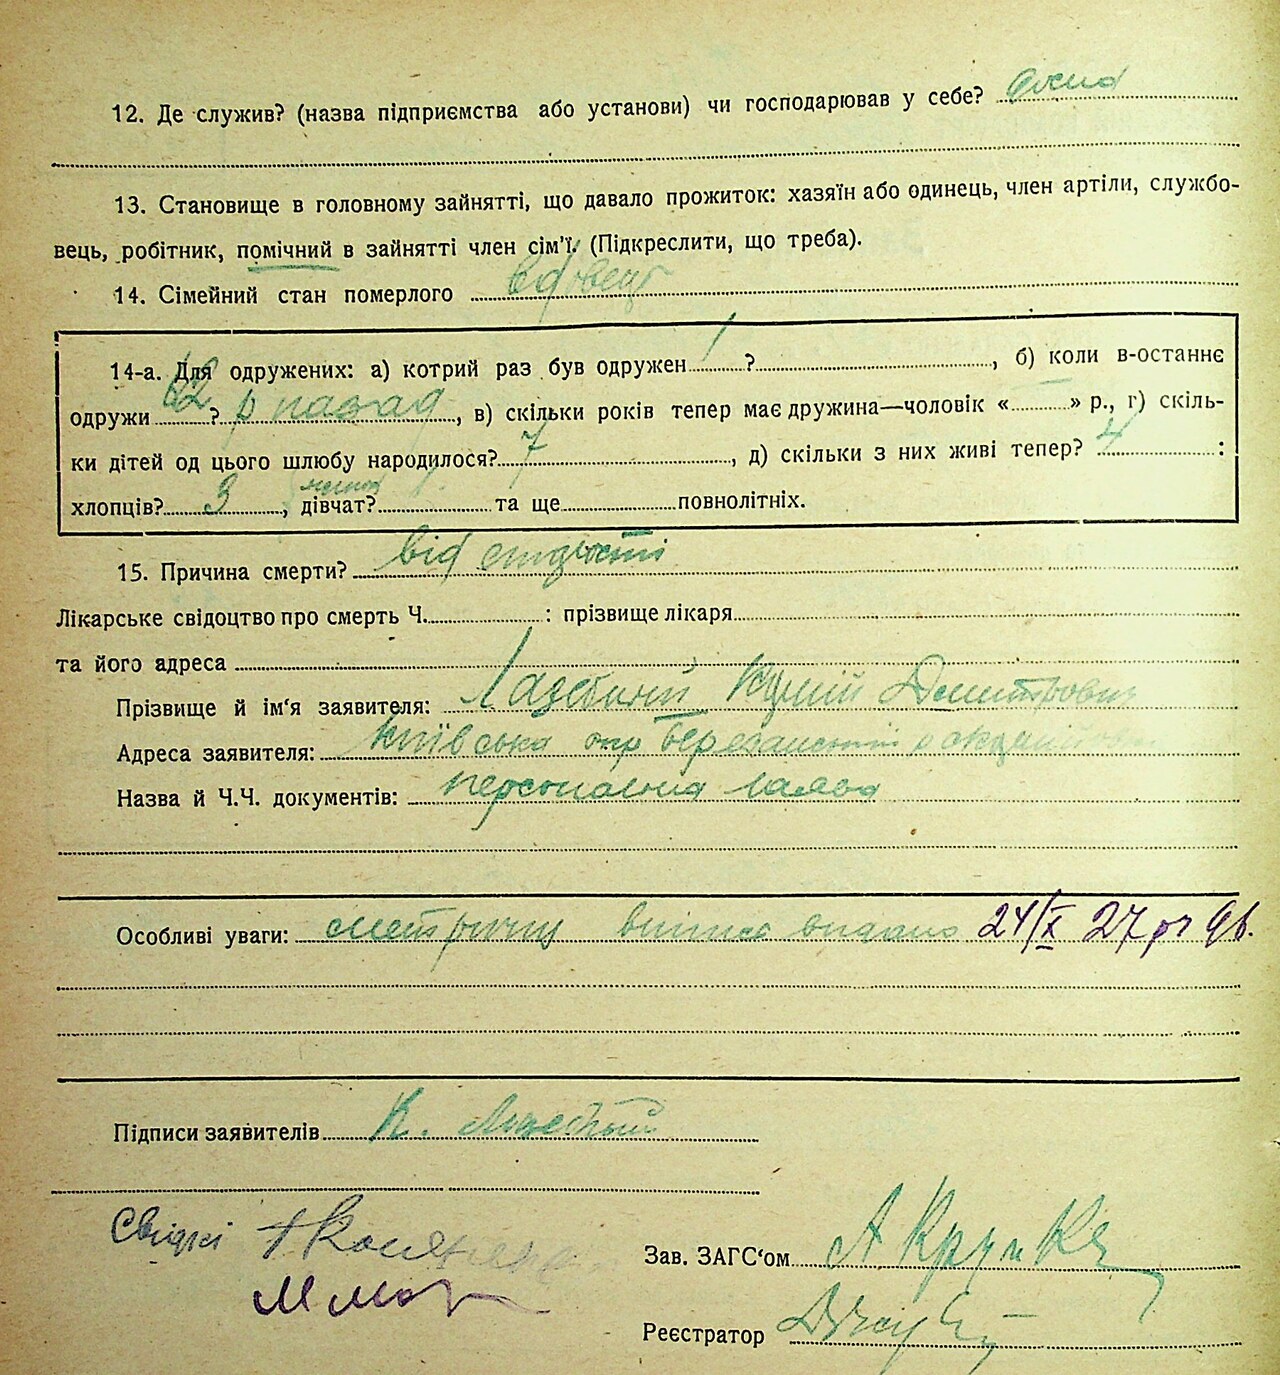 12. Де служив? (назва підприємства або установи) чи господарював у себе?
13. Становище в головному зайнятті, що давало прожиток: хазяїн або одинець, член артіли, службо-
вець, робітник, помічний в зайнятті член сім'ї. (Підкреслити, що треба).
14. Сімейний стан померлого вдовець
14-а. Для одружених: а) котрий раз був одружен 1 ?, б) коли в-останнє
одружи 62 ? р назад, в) скільки років тепер має дружина—чоловік « » р., г) скіль-
ки дітей од цього шлюбу народилося? 7, д) скільки з них живі тепер? 4 :
хлопців? 3, дівчат? та ще повнолітніх.
15. Причина смерти? від старости
Лікарське свідоцтво про смерть Ч. : прізвище лікаря
та його адреса
Прізвище й ім'я заявителя: Лазебний Дмитрович
Адреса заявителя: Київська окр Березанський
Назва й Ч.Ч. документів: персональна заява
Особливі уваги: метричну виписв видано 24/X 27 р
Підписи заявителів К. Лазебний
Свідки
Зав. ЗАГС'ом А Крупка
Реєстратор